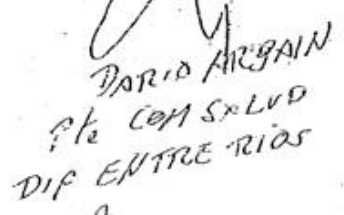 DARIO ARGAIN
Pte COM SALUD
DIP ENTRE RIOS